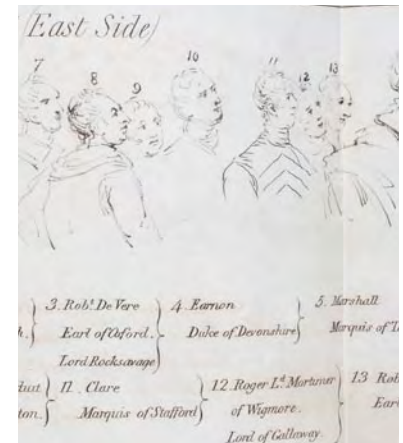 (East Side)
7 8 9 10 11 12 13
3. Robt. De Vere
Earl of Oxford.
Lord Rocksavage
4. Earnon
Duke of Devonshire
5. Marshall
Marquis of
h.
11. Clare
Marquis of Stafford
12. Roger Ld. Mortimer
of Wigmore.
Lord of Gallaway.
13 Rob
Earl
ton.